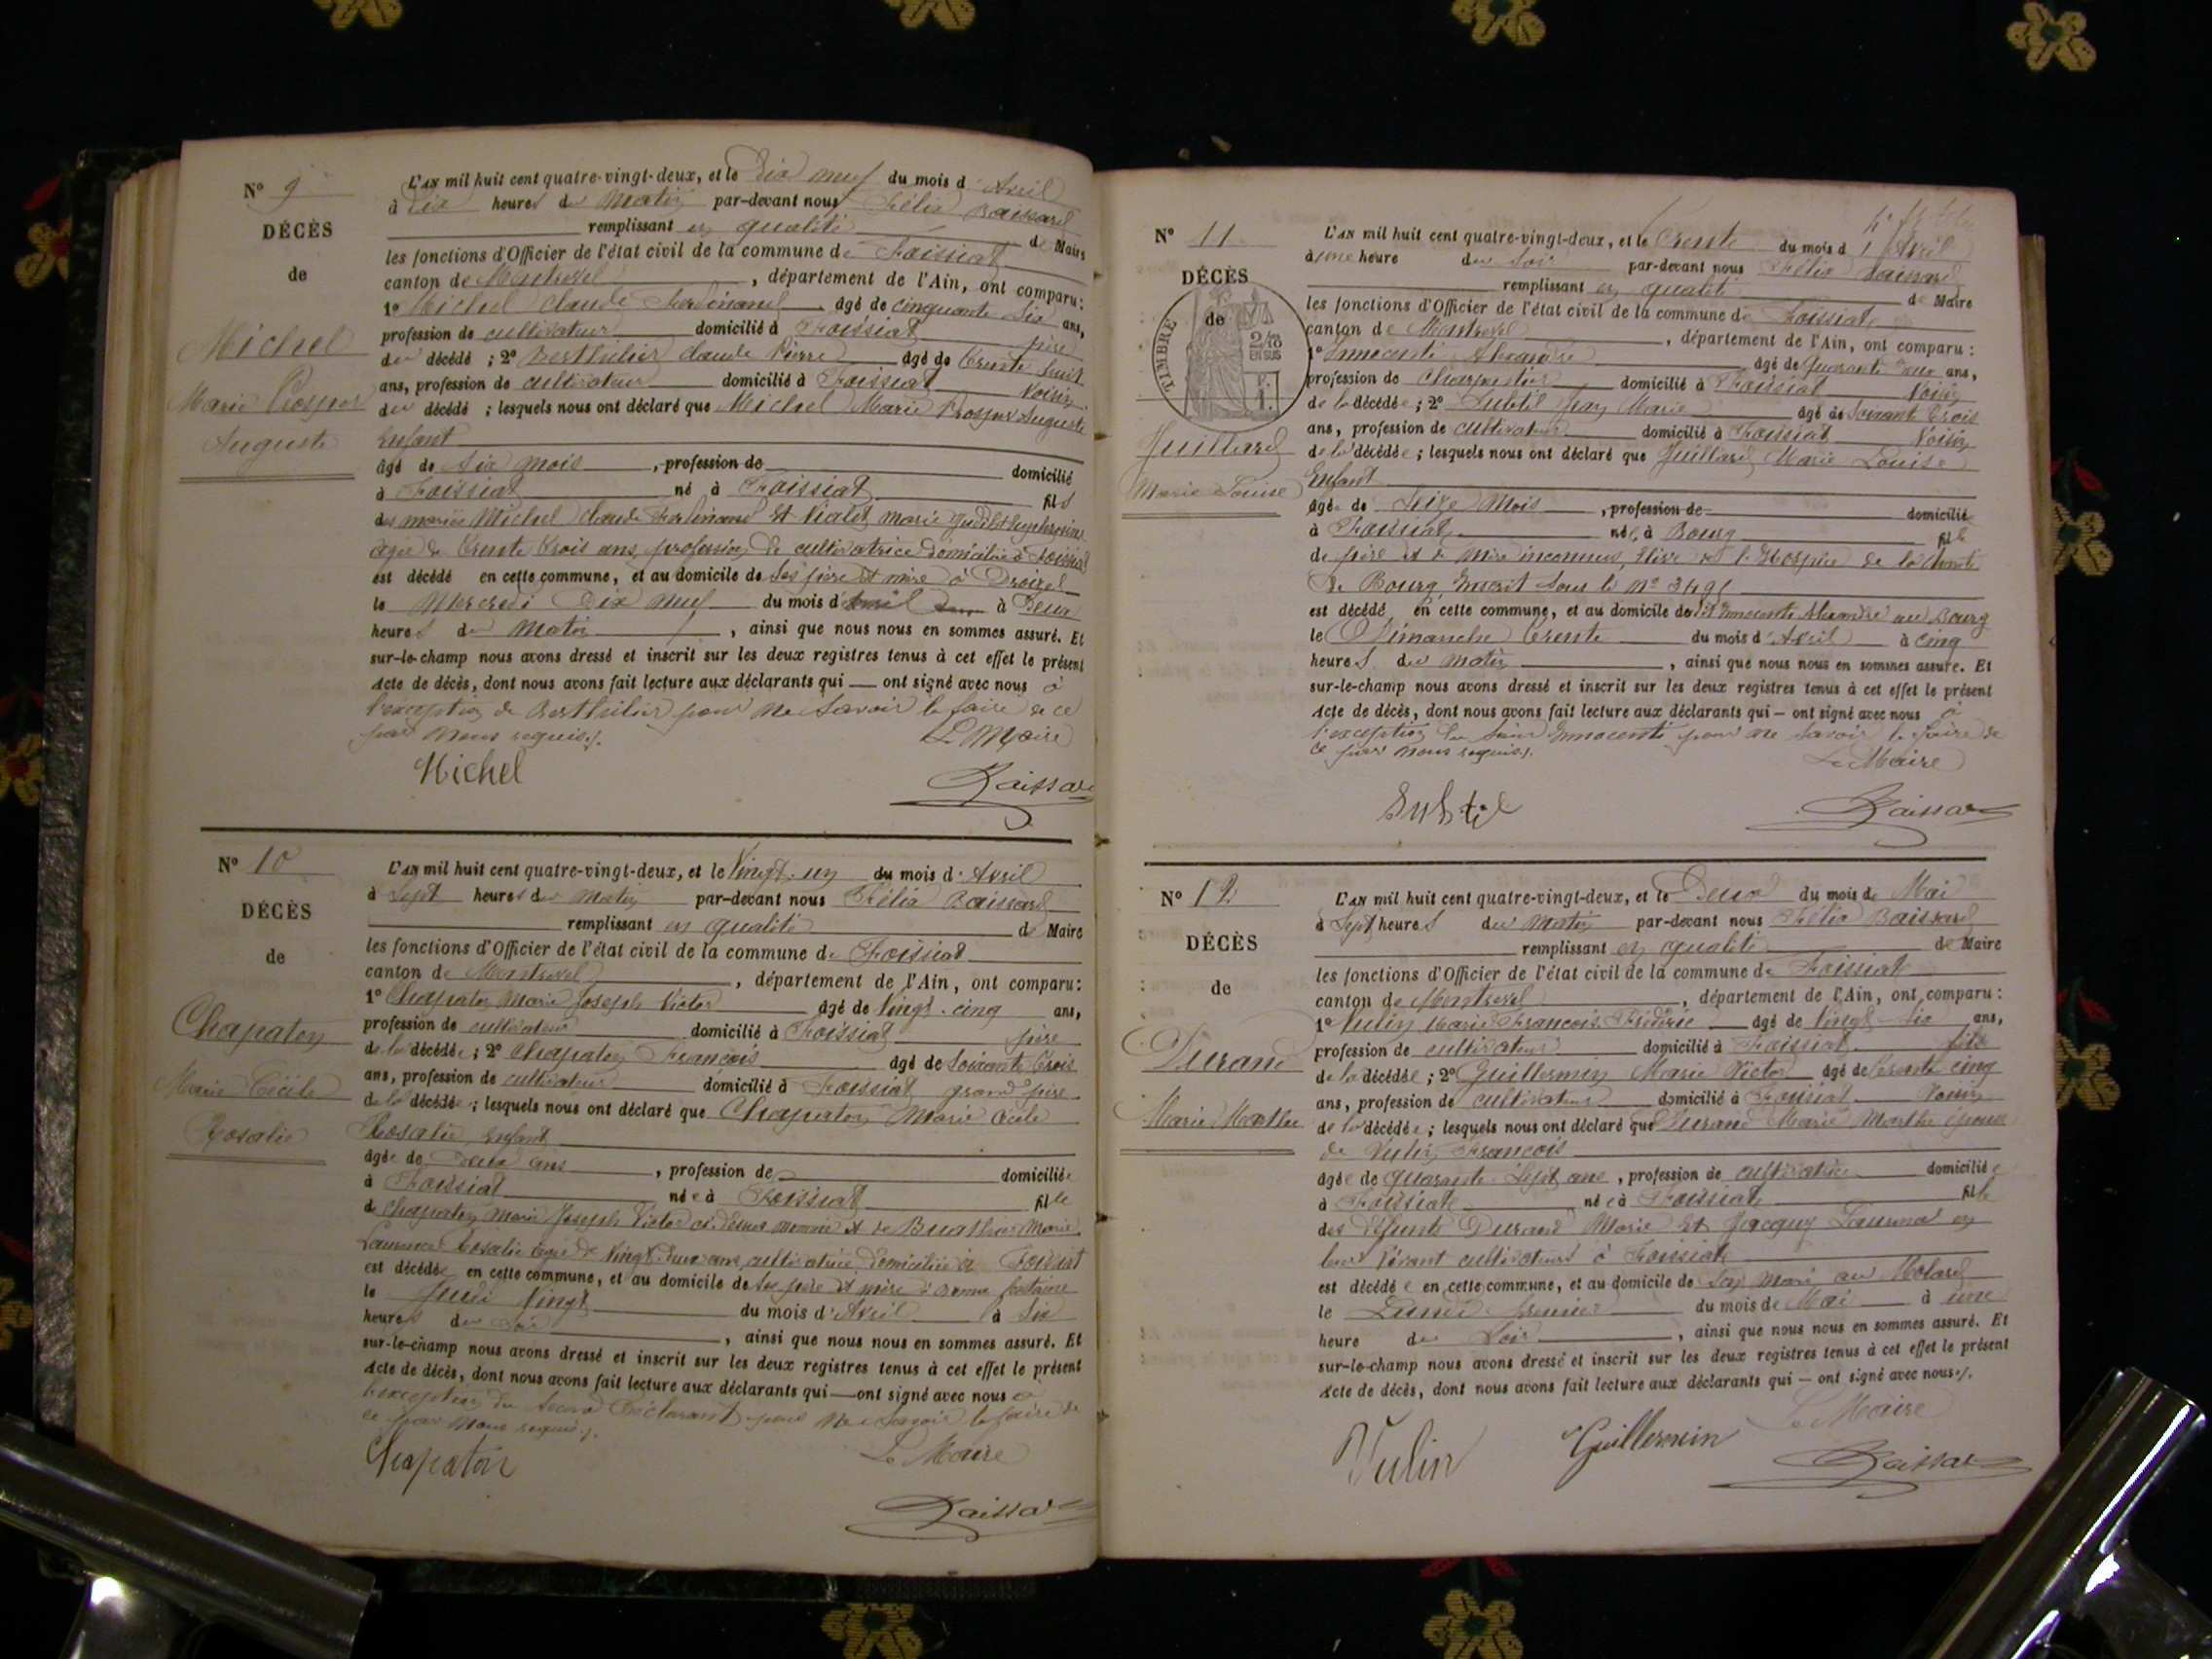 N° 9
DÉCÈS
de
Michel
Marie Prosper
Auguste
L'AN mil huit cent quatre-vingt-deux, et le Dix neuf du mois d'Avril
à Dix heures du Matin par-devant nous Félix Baissard
remplissant en qualité de Maire
les fonctions d'Officier de l'état civil de la commune de Foissiat
canton de Montrevel, département de l'Ain, ont comparu:
1° Michel Claude Ferdinand âgé de cinquante six ans,
profession de cultivateur domicilié à Foissiat père
du décédé ; 2° Berthelier Claude Pierre âgé de Trente huit
ans, profession de cultivateur domicilié à Foissiat Voisin
du décédé ; lesquels nous ont déclaré que Michel Marie Prosper Auguste
Enfant
âgé de Six mois, profession de domicilié
à Foissiat né à Foissiat fils
des mariés Michel Claude Ferdinand Et Vialet Marie
âgée de Trente trois ans, profession de cultivatrice domiciliée à Foissiat
est décédé en cette commune, et au domicile de ses père et mère à
le Mercredi Dix neuf du mois d'Avril à Deux
heures du Matin, ainsi que nous nous en sommes assuré. Et
sur-le-champ nous avons dressé et inscrit sur les deux registres tenus à cet effet le présent
Acte de décès, dont nous avons fait lecture aux déclarants qui — ont signé avec nous à
l'exception de Berthelier pour ne savoir le faire de ce
par nous requis.
Le Maire
Michel
Baissard
N° 10
DÉCÈS
de
Chapaton
Marie Cécile
Rosalie
L'AN mil huit cent quatre-vingt-deux, et le Vingt-un du mois d'Avril
à Sept heures du Matin par-devant nous Félix Baissard
remplissant en qualité de Maire
les fonctions d'Officier de l'état civil de la commune de Foissiat
canton de Montrevel, département de l'Ain, ont comparu:
1° Chapaton Marie Joseph Victor âgé de Vingt-cinq ans,
profession de cultivateur domicilié à Foissiat père
de la décédée ; 2° Chapaton François âgé de Soixante trois
ans, profession de cultivateur domicilié à Foissiat grand père
de la décédée ; lesquels nous ont déclaré que Chapaton Marie Cécile
Rosalie, Enfant
âgée de Deux ans, profession de domiciliée
à Foissiat née à Foissiat fille
de Chapaton Marie Joseph Victor ci-dessus nommé et de Buathier Marie
Laurence Rosalie âgée de Vingt deux ans, cultivatrice, domiciliée à Foissiat
est décédée en cette commune, et au domicile de ses père et mère à Bonne fontaine
le Jeudi Vingt du mois d'Avril à Six
heures du soir, ainsi que nous nous en sommes assuré. Et
sur-le-champ nous avons dressé et inscrit sur les deux registres tenus à cet effet le présent
Acte de décès, dont nous avons fait lecture aux déclarants qui — ont signé avec nous à
l'exception du Second Déclarant pour ne savoir le faire de
ce par nous requis.
Le Maire
Chapaton
Baissard
N° 11
DÉCÈS
de
TIMBRE
2/10
EN SUS
Juillard
Marie Louise
L'AN mil huit cent quatre-vingt-deux, et le Trente du mois d'Avril
à une heure du Soir par-devant nous Félix Baissard
remplissant en qualité de Maire
les fonctions d'Officier de l'état civil de la commune de Foissiat
canton de Montrevel, département de l'Ain, ont comparu :
1° Innocenti Alexandre âgé de Quarante deux ans,
profession de Charpentier domicilié à Foissiat Voisin
de la décédée ; 2° Subtil Jean Marie âgé de Soixante trois
ans, profession de cultivateur domicilié à Foissiat Voisin
de la décédée ; lesquels nous ont déclaré que Juillard Marie Louise
Enfant
âgée de Seize Mois, profession de domiciliée
à Foissiat née à Bourg fille
de père et de mère inconnus, Elève de l'Hospice de la Charité
de Bourg, Inscrit sous le N° 3491
est décédé en cette commune, et au domicile de dit Innocenti Alexandre au Bourg
le Dimanche Trente du mois d'Avril à cinq
heures du matin, ainsi que nous nous en sommes assuré. Et
sur-le-champ nous avons dressé et inscrit sur les deux registres tenus à cet effet le présent
Acte de décès, dont nous avons fait lecture aux déclarants qui — ont signé avec nous à
l'exception du Innocenti pour ne savoir le faire de
ce par nous requis.
Le Maire
Subtil
Baissard
N° 12
DÉCÈS
de
Durand
Marie Marthe
L'AN mil huit cent quatre-vingt-deux, et le Deux du mois de Mai
à Sept heures du Matin par-devant nous Félix Baissard
remplissant en qualité de Maire
les fonctions d'Officier de l'état civil de la commune de Foissiat
canton de Montrevel, département de l'Ain, ont comparu :
1° Vulin Marie François Frédéric âgé de Vingt-Six ans,
profession de cultivateur domicilié à Foissiat fils
de la décédée ; 2° Guillermin Marie Victor âgé de Trente cinq
ans, profession de cultivateur domicilié à Foissiat Voisin
de la décédée ; lesquels nous ont déclaré que Durand Marie Marthe épouse
de Vulin François
âgée de Quarante-Sept ans, profession de cultivatrice domiciliée
à Foissiat née à Foissiat fille
des défunts Durand Marie Et
leur vivant cultivateurs à Foissiat
est décédée en cette commune, et au domicile de son mari au Molard
le Lundi premier du mois de Mai à une
heure du Soir, ainsi que nous nous en sommes assuré. Et
sur-le-champ nous avons dressé et inscrit sur les deux registres tenus à cet effet le présent
Acte de décès, dont nous avons fait lecture aux déclarants qui — ont signé avec nous.
Le Maire
Vulin
Guillermin
Baissard